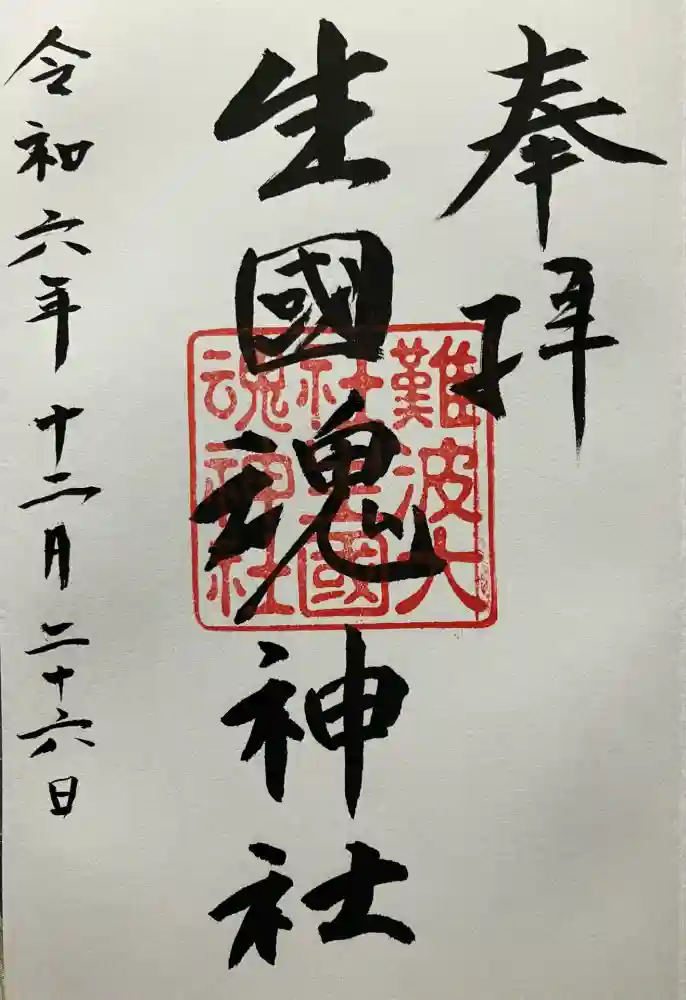 奉拝
難波大
社生國
魂神社
生國魂神社
令和六年十二月二十六日